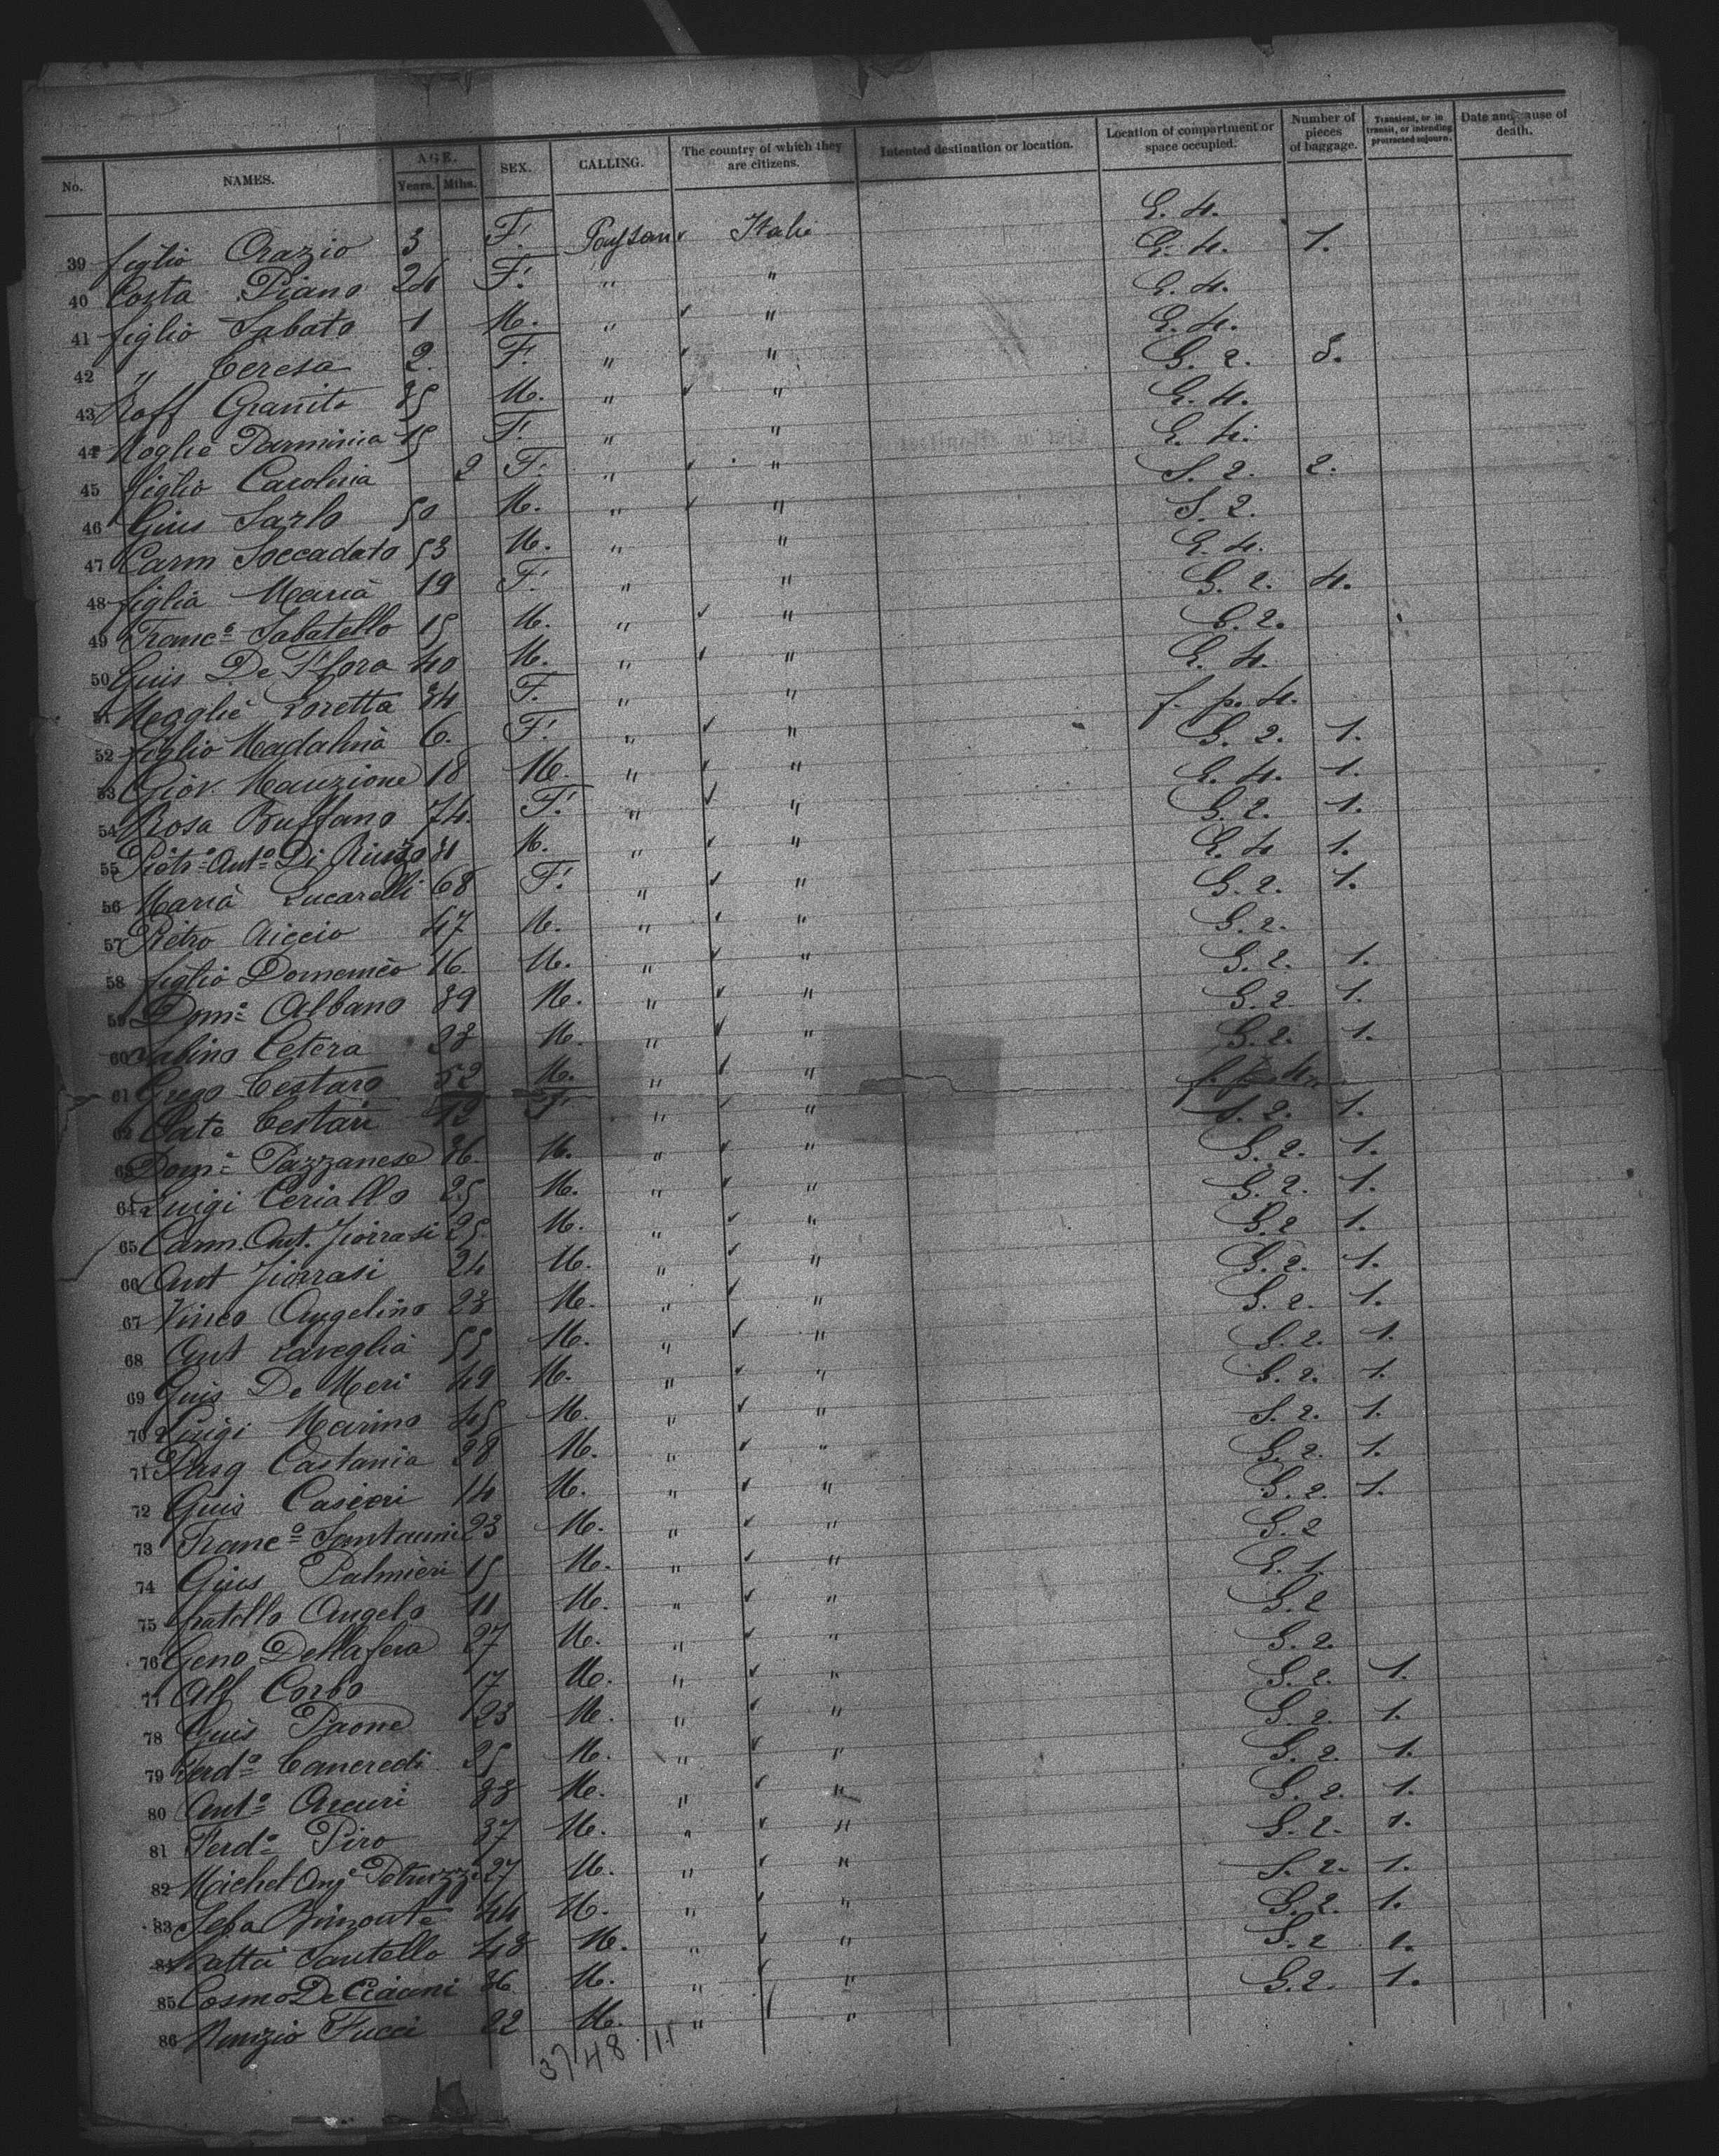 No. NAMES. AGE. Years. Mths. SEX. CALLING. The country of which they are citizens. Intented destination or location. Location of compartment or space occupied. Number of pieces of baggage. Transient, or in transit, or intending protracted sojourn. Date and cause of death.
39 figlio Orazio 3 F. Italie E. 4.
40 Costa Piano 24 F. " " E. 4. 1.
41 figlio Sabato 1 M. " " E. 4.
42 " Teresa 2. F. " " E. 4.
43 Raff Granito 35 M. " " G. 2. 3.
44 Moglie Parminia 15 F. " " E. 4.
45 figlio Carolina 2 F. " " E. 4.
46 Gius Sarlo 50 M. " " S. 2. 2.
47 Carm Soccadato 53 M. " " S. 2.
48 figlia Maria 19 F. " " E. 4.
49 Franc° Sabatello 15 M. " " G. 2. 4.
50 Guis De Flora 40 M. " " G. 2.
51 Moglie Loretta 34 F. " " E. 4.
52 figlio Madalina 6. F. " " f. p. 4.
53 Giov. Mauzione 18 M. " " G. 2. 1.
54 Rosa Buffano 74. F. " " E. 4. 1.
55 Pietr° Ant° Di Rienzo 31 M. " " G. 2. 1.
56 Maria Lucarelli 68 F. " " E. 4 1.
57 Pietro Aiccio 47 M. " " G. 2. 1.
58 figlio Domenico 16. M. " " G. 2.
59 Dom° Albano 39 M. " " G. 2. 1.
60 Sabino Cetera 28 M. " " G. 2. 1.
61 Grego Cestaro 52 M. " " G. 2. 1.
62 Cate Cestari 12 F " " f. p. 4.
63 Dom° Pazzanese 36. M. " " S. 2. 1.
64 Luigi Ceriallo 25 M. " " G. 2. 1.
65 Carm. Ant. Jiorrasi 25. M. " " G. 2. 1.
66 Ant Jiorrasi 24 M. " " G. 2 1.
67 Vinco Angelino 28 M. " " G. 2. 1.
68 Ant Laveglia 55 M. " " G. 2. 1.
69 Guis De Meri 49 M. " " G. 2. 1.
70 Luigi Marino 45 M. " " G. 2. 1.
71 Pasq Castania 28 M. " " S. 2. 1.
72 Guis Casciori 14 M. " " G. 2. 1.
73 Franc° Santauni 23 M. " " G. 2. 1.
74 Gius Palmieri 15 M. " " G. 2
75 fratello Angelo 11 M. " " E. 1.
76 Geno Dellafera 27 M. " " G. 2
77 Alf Corbo 17 M. " " G. 2.
78 Guis Paone 23 M. " " G. 2. 1.
79 Ferd° Cancredi 25 M. " " G. 2. 1.
80 Ant° Arcuri 33 M. " " G. 2. 1.
81 Ferd° Piro 37 M. " " G. 2. 1.
82 Michel Ang° Petruzzi 27 M. " " G. 2. 1.
83 Seba Bimonte 44 M. " " S. 2. 1.
84 Matteo Santello 48 M. " " G. 2. 1.
85 Cosmo De Ciacini 36 M. " " S. 2 1.
86 Nunzio Fucci 22 M. " " G. 2. 1.
37 48 11